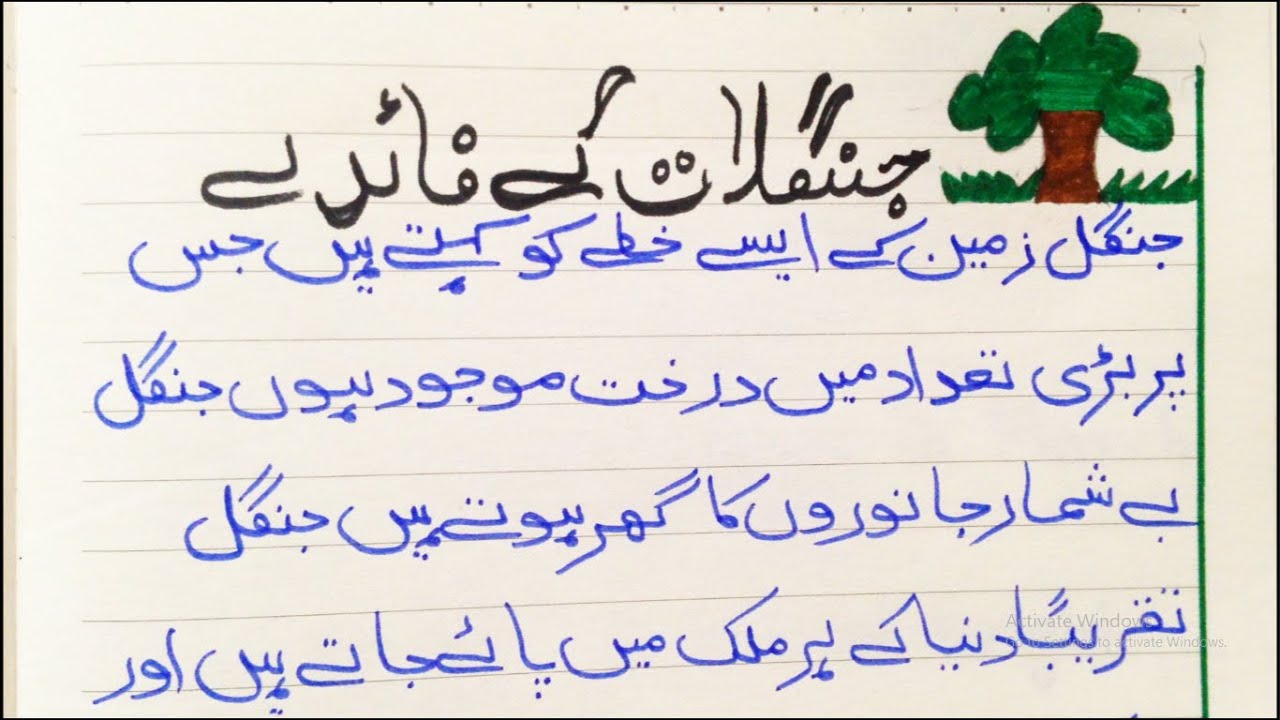 جنگلات کے فائدے
جنگل زمین کے ایسے خطے کو کہتے ہیں جس
پر بڑی تعداد میں درخت موجود ہوں جنگل
بے شمار جانوروں کا گھر ہوتے ہیں جنگل
تقریباً دنیا کے ہر ملک میں پائے جاتے ہیں اور
Activate Windows
Go to Settings to activate Windows.